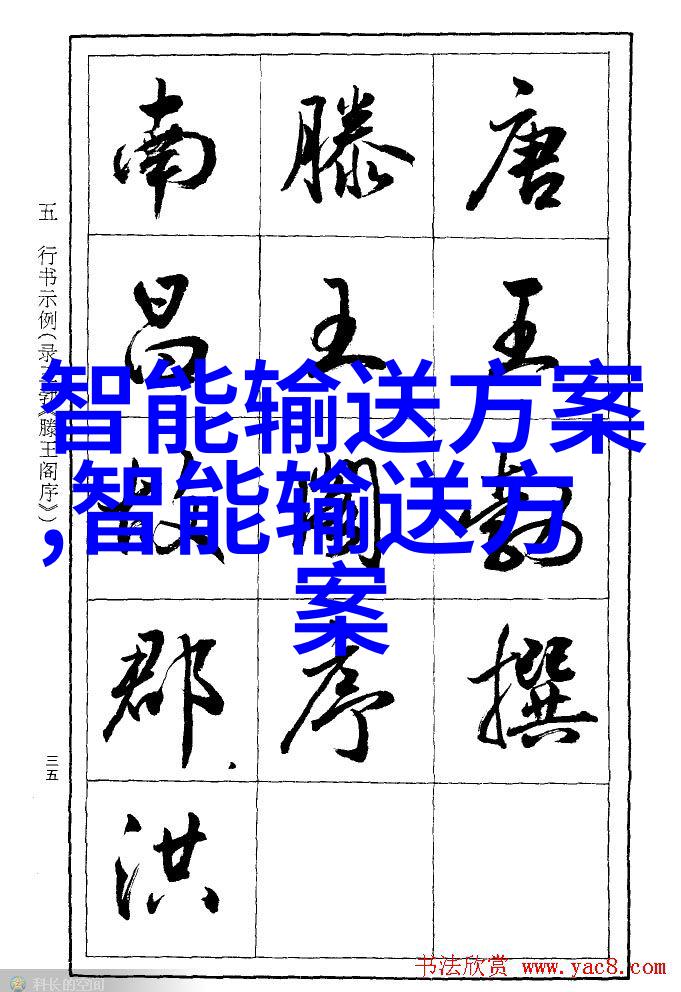 唐王勃撰
滕王阁序
南昌故郡.洪
五 行书示例(录王勃《滕王阁序》)
三五
智能输送方案
,智能输送方
案
书法欣赏 www.yac8.com
科长的空间